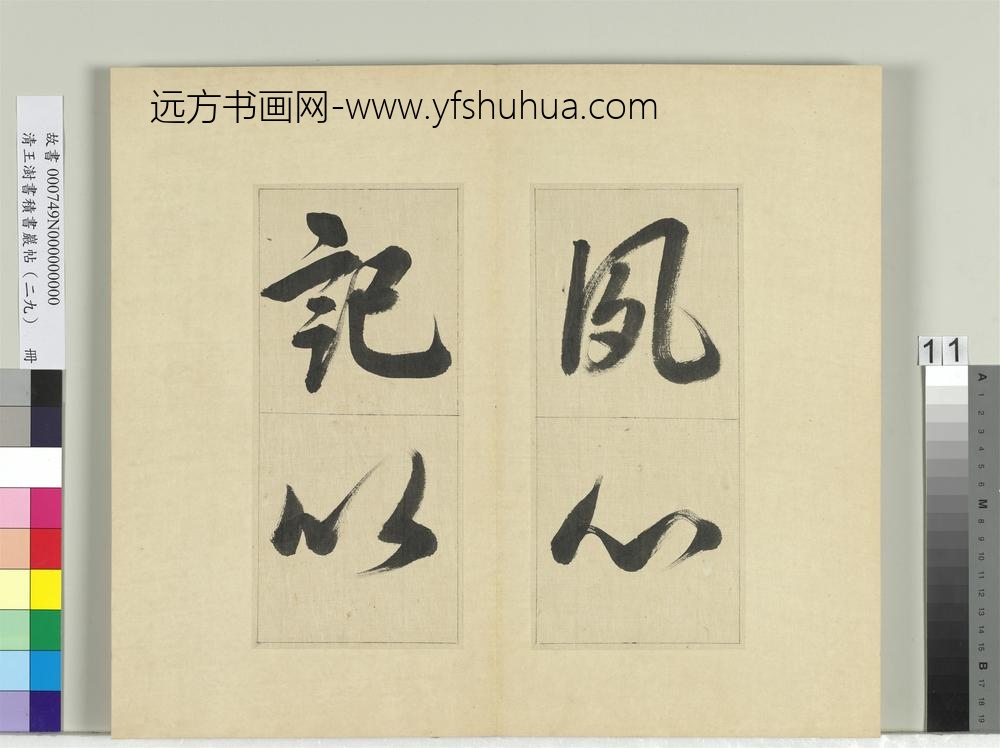 远方书画网-www.yfshuhua.com
夙心
記以
故書 000749N000000000
清王澍書積書巖帖（二九） 冊
11
A 1 2 3 4 5 6 M 8 9 10 11 12 13 14 15 B 17 18 19